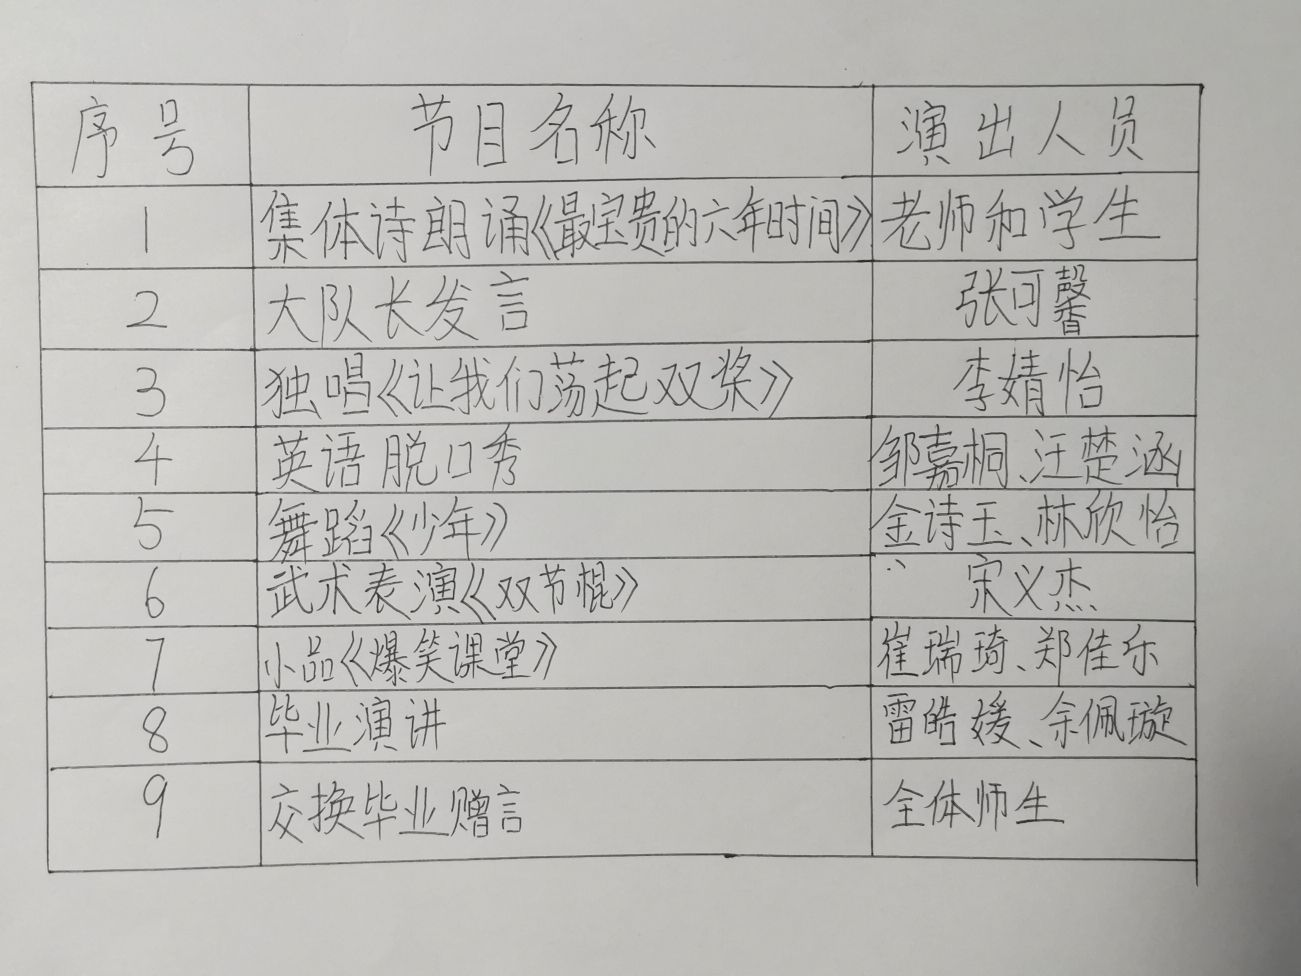 序号 节目名称 演出人员
1 集体诗朗诵《最宝贵的六年时间》 老师和学生
2 大队长发言 张可馨
3 独唱《让我们荡起双桨》 李婧怡
4 英语脱口秀 邹嘉桐、汪楚涵
5 舞蹈《少年》 金诗玉、林欣怡
6 武术表演《双节棍》 宋义杰
7 小品《爆笑课堂》 崔瑞琦、郑佳乐
8 毕业演讲 雷皓媛、余佩璇
9 交换毕业赠言 全体师生